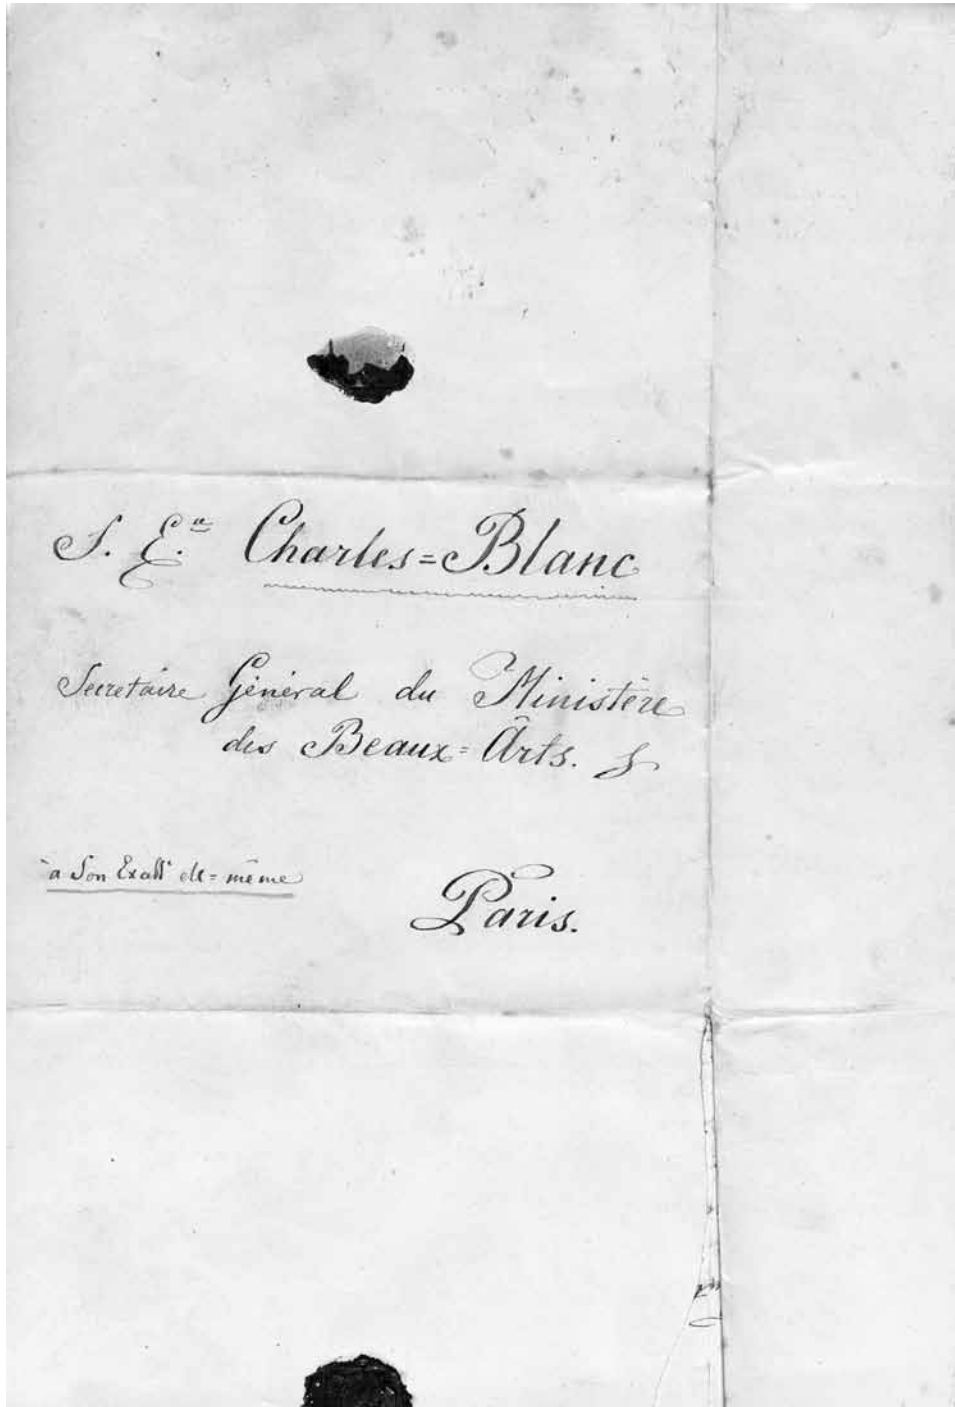 S. E.ª Charles=Blanc
Secretaire Général du Ministère
des Beaux=Ârts.
à Son Exall* elle=même
Paris.